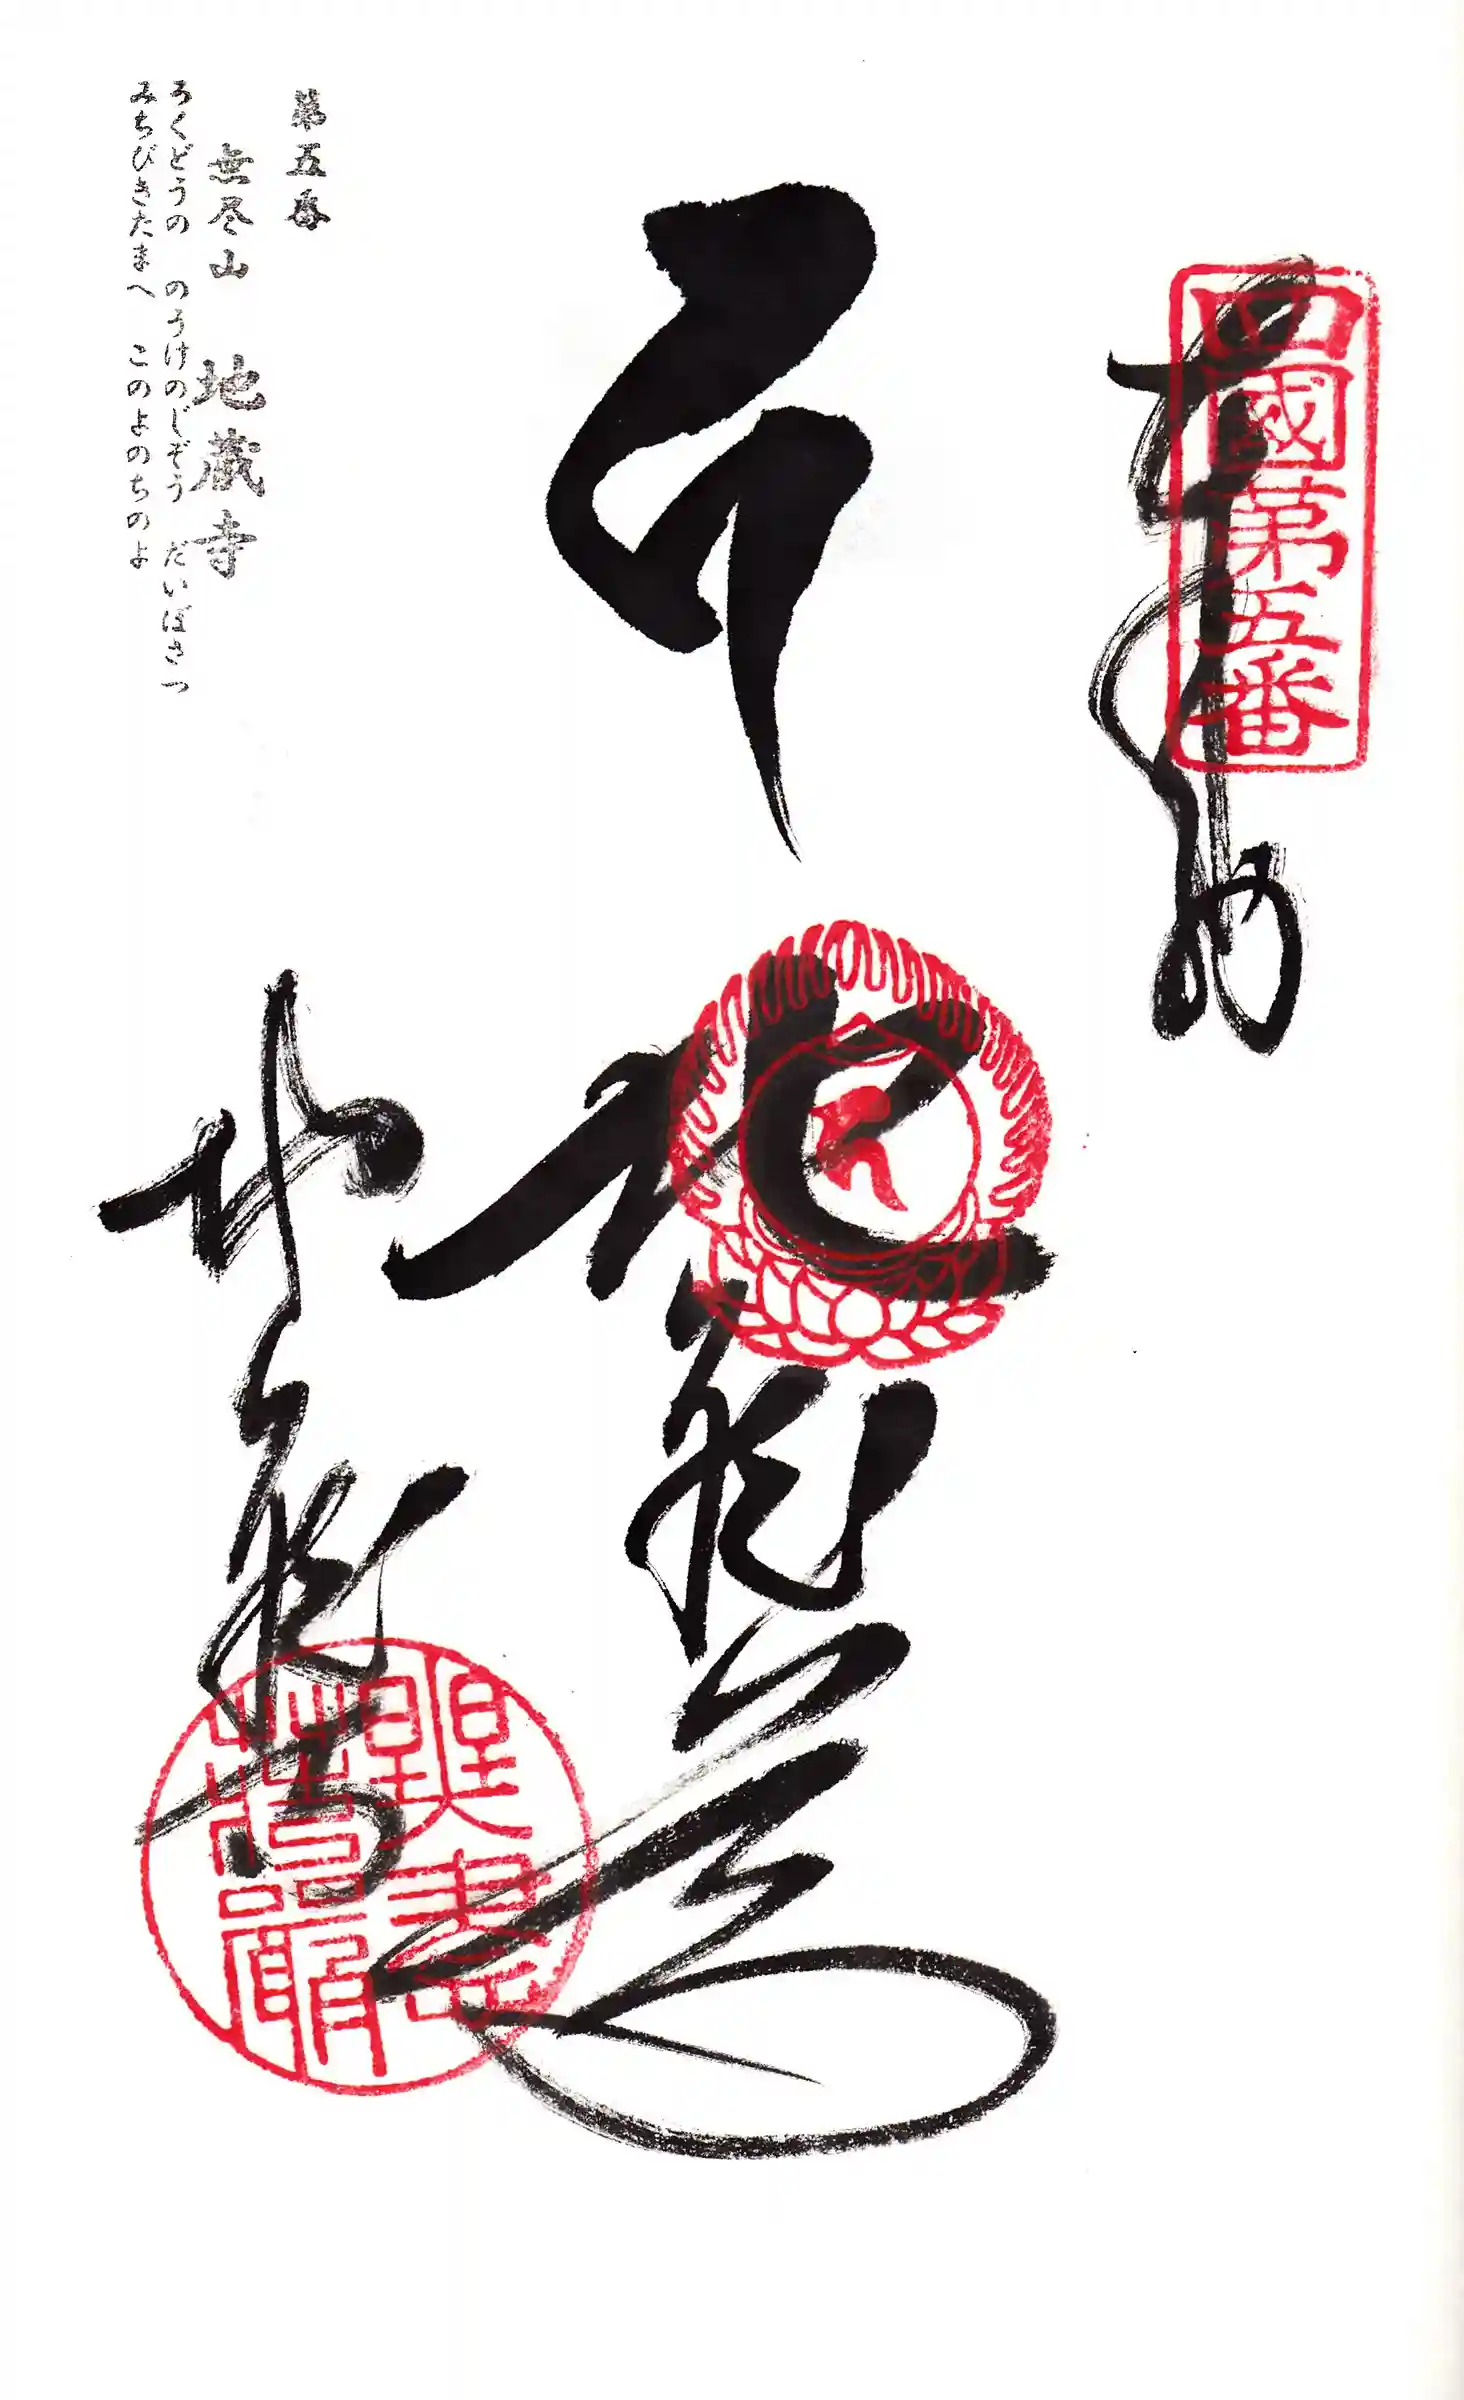 奉納
四國第五番
地蔵菩薩
地蔵寺
第五番
無尽山 地蔵寺
ろくどうの のうけのじぞう だいぼさつ
みちびきたまへ このよのちのよ